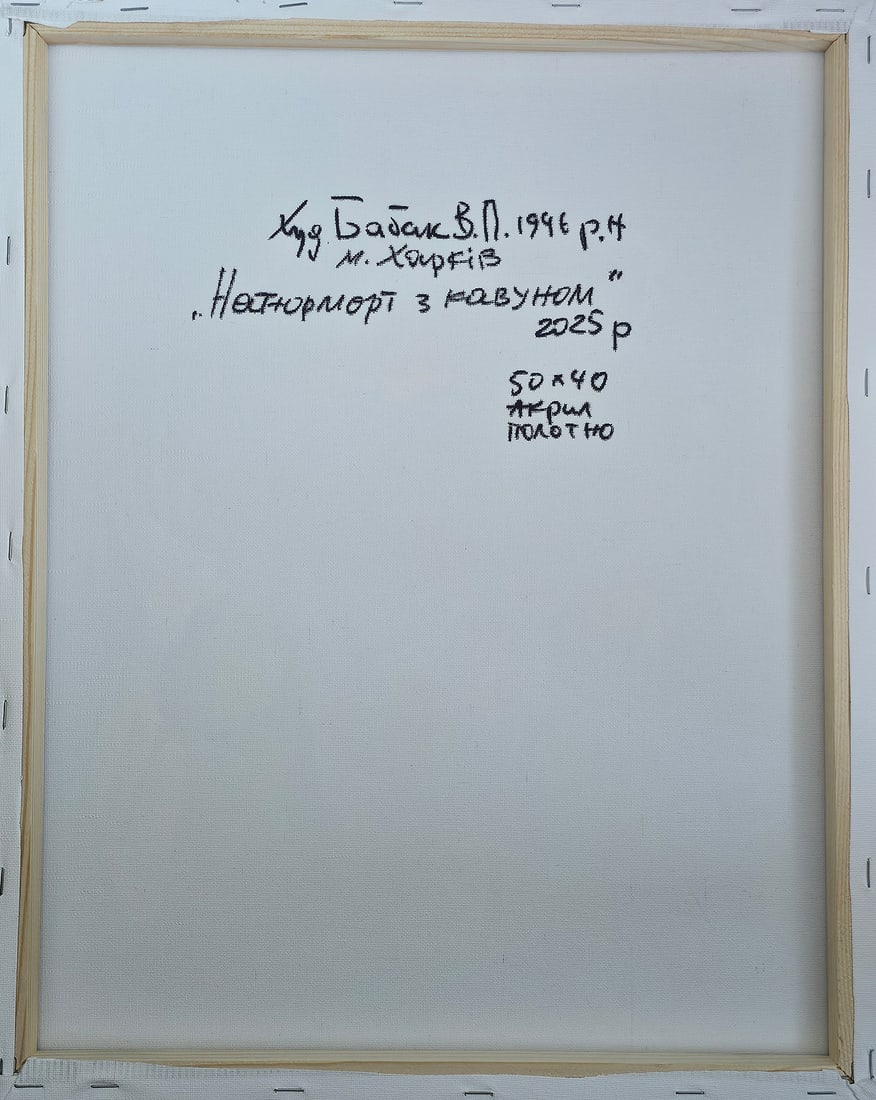 Худ. Бабак В.П. 1946 р.н
м. Харків
„Натюрморт з кавуном"
2025 р
50×40
Акрил
полотно